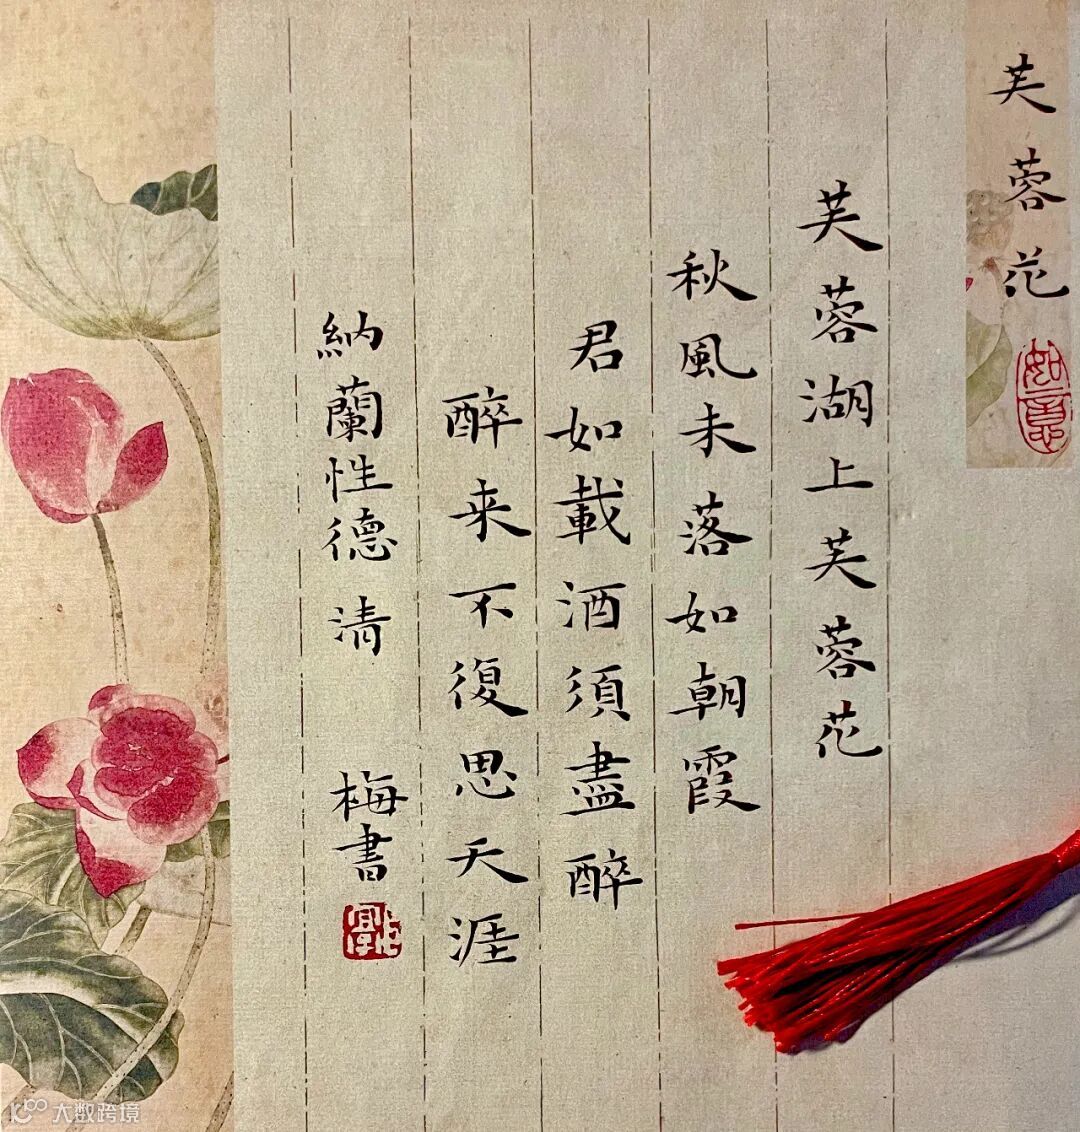 芙蓉花
如意
芙蓉湖上芙蓉花
秋風未落如朝霞
君如載酒須盡醉
醉来不復思天涯
納蘭性德 清 梅書
大数跨境